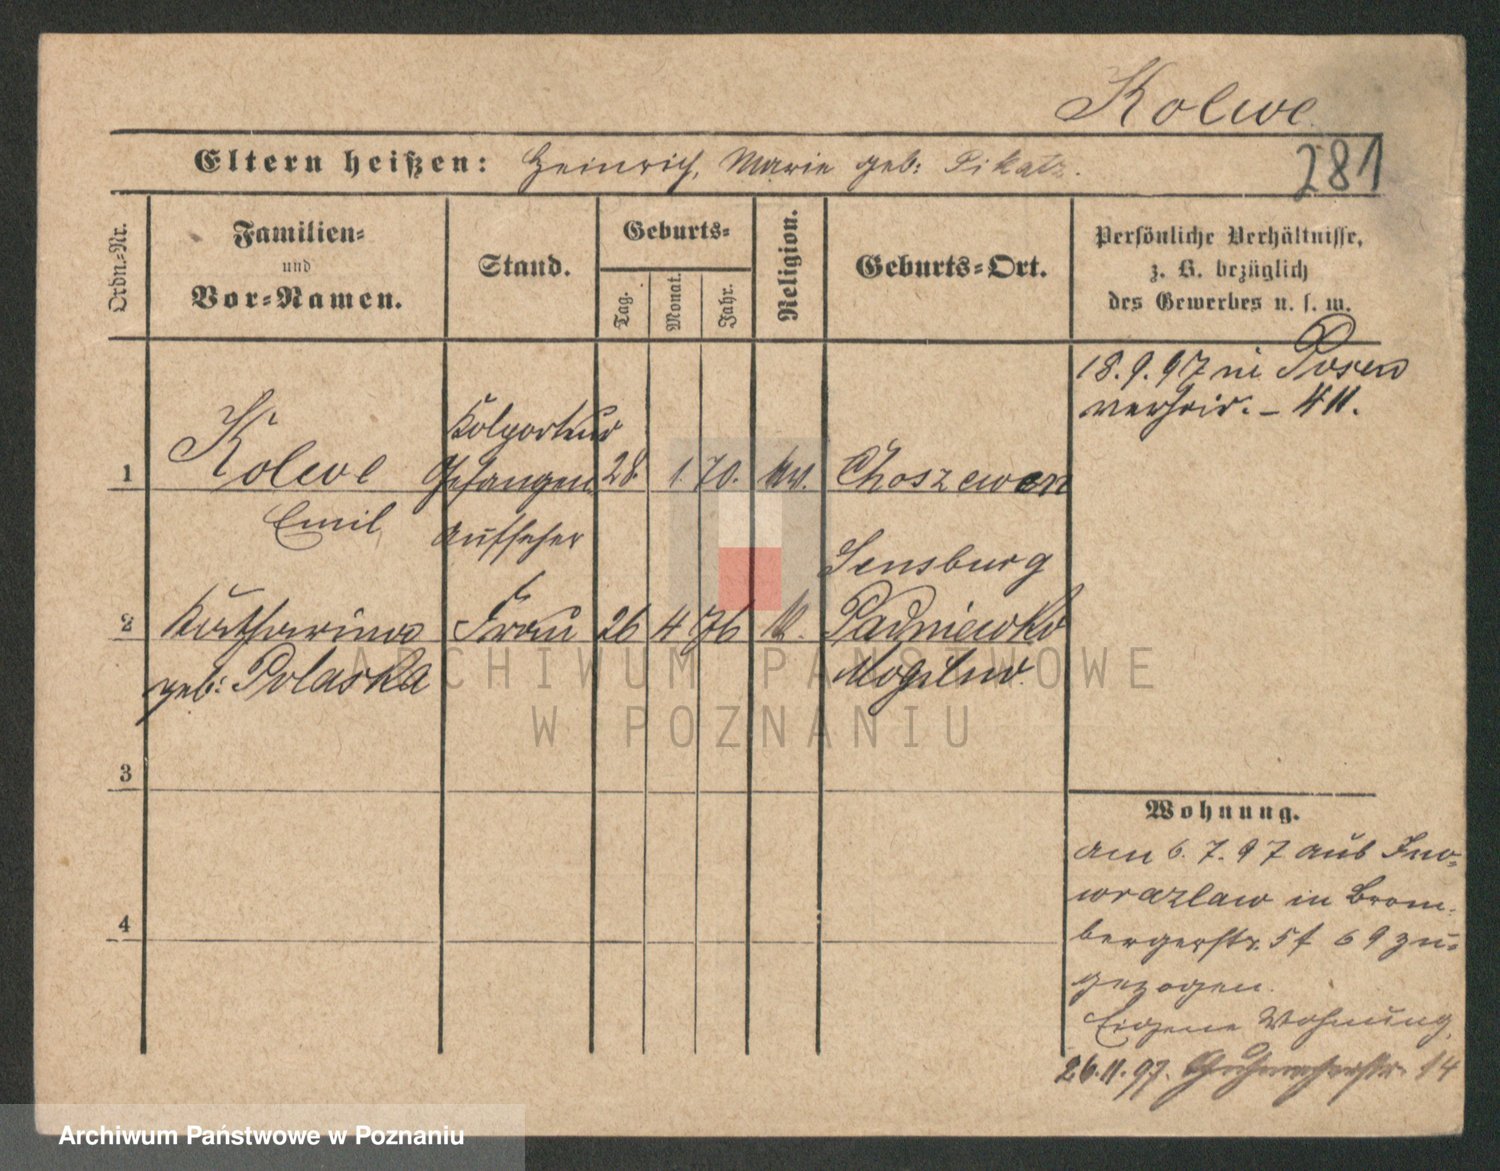 Kolwe
281
Eltern heißen: Heinrich, Marie geb: Pikatz.
Ordn.-Nr.
Familien-
und
Vor-Namen.
Stand.
Geburts-
Tag.
Monat.
Jahr.
Religion.
Geburts-Ort.
Persönliche Verhältnisse,
z. B. bezüglich
des Gewerbes u. s. w.
18.9.97 in Posen
verheir. - 411.
Kolporteur
1 Kolwe Gefangen 28. 1. 70. ev. Choszewen
Emil Aufseher
Sensburg
2 Katharina Frau 26 4 76 k.
geb: Polaska Mogilno
3
4
Wohnung.
am 6. 7. 97 aus Ino-
wrazlaw in Brom-
bergerstr. 5 f 69 zu-
gezogen.
Eigene Wohnung
26.11.97. 14
ARCHIWUM PAŃSTWOWE
W POZNANIU
Archiwum Państwowe w Poznaniu